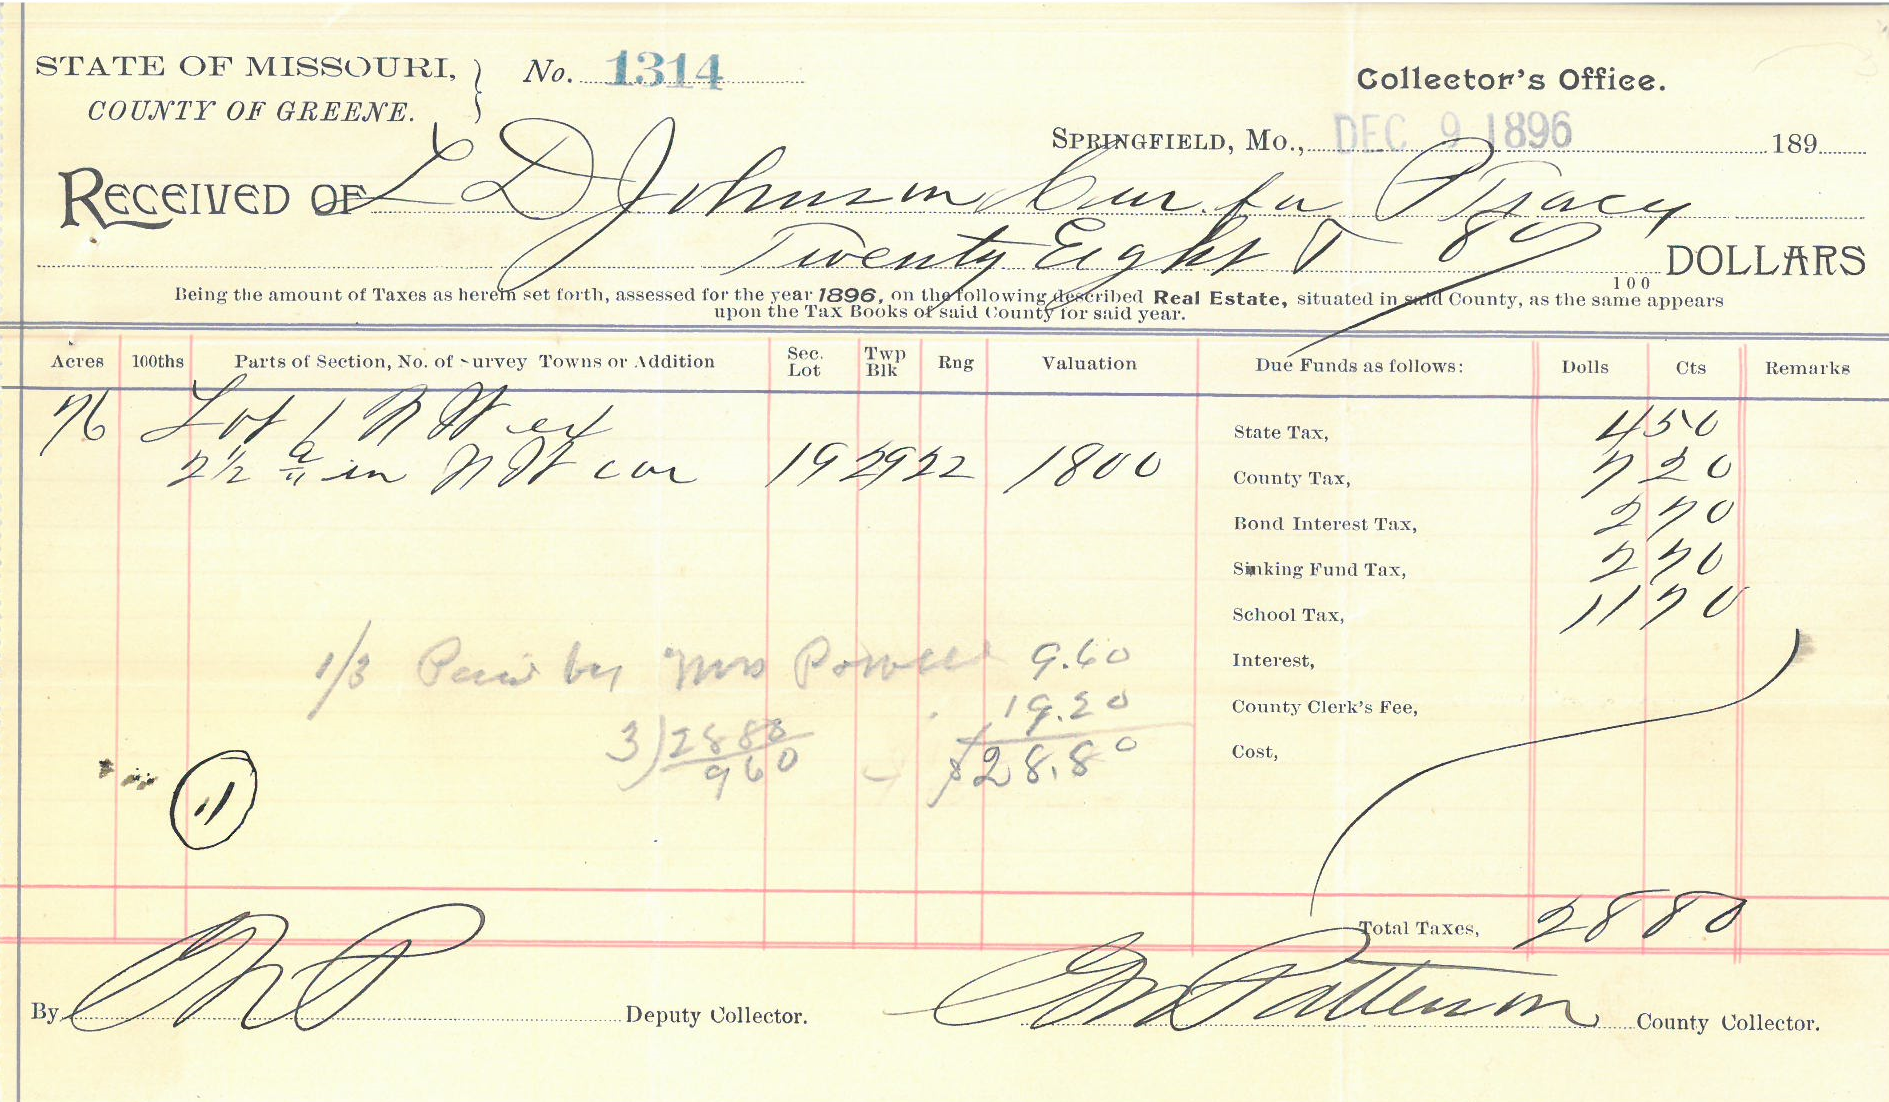 STATE OF MISSOURI, } No. 1314
COUNTY OF GREENE.
Collector's Office.
SPRINGFIELD, MO., DEC 9 1896 189
RECEIVED OF L D Johnson Cur for P Tracy
Twenty Eight & 80/100 DOLLARS
Being the amount of Taxes as herein set forth, assessed for the year 1896, on the following described Real Estate, situated in said County, as the same appears
upon the Tax Books of said County for said year.
Acres 100ths Parts of Section, No. of Survey Towns or Addition Sec. Lot Twp Blk Rng Valuation Due Funds as follows: Dolls Cts Remarks
76 Lot 1 N W ex
2 1/2 a in N W cor 19 29 22 1800
State Tax, 4 50
County Tax, 7 20
Bond Interest Tax, 2 70
Sinking Fund Tax, 2 70
School Tax, 11 70
1/3 Paid by Mrs Powell 9.60
Interest,
19.20
County Clerk's Fee,
3)2880
960
$28.80
Cost,
11
Total Taxes, 28 80
By Deputy Collector.
Patterson County Collector.